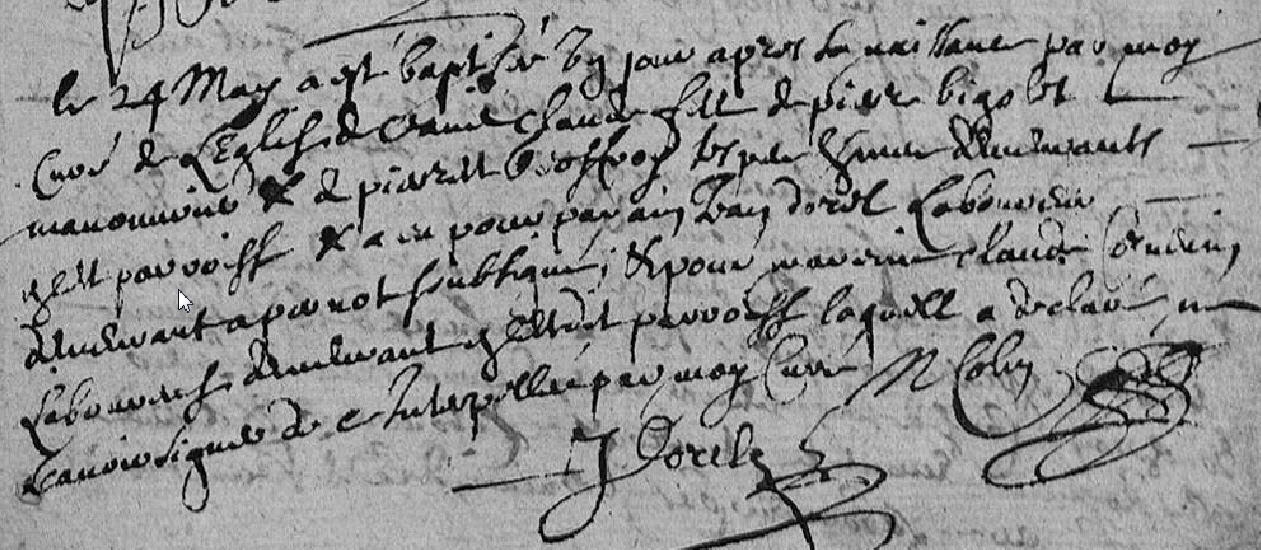 le 24 May a est baptisé un jour apres sa naissance par moy
Curé de L'Eglise de Claude fill de pierre bigo et
manouvrie & de pierrett Geoffroy ses pere & mere demeurants
en cett parroisse & a eu pour parain Jean dorel Laboureur
demeurant a pernot & pour mareine claude
Laboureuse demeurant en cettdit parroisse laquelle a declaré ne
scavoir signer de ce Interpellée par moy Curé N Colin
J Dorelz